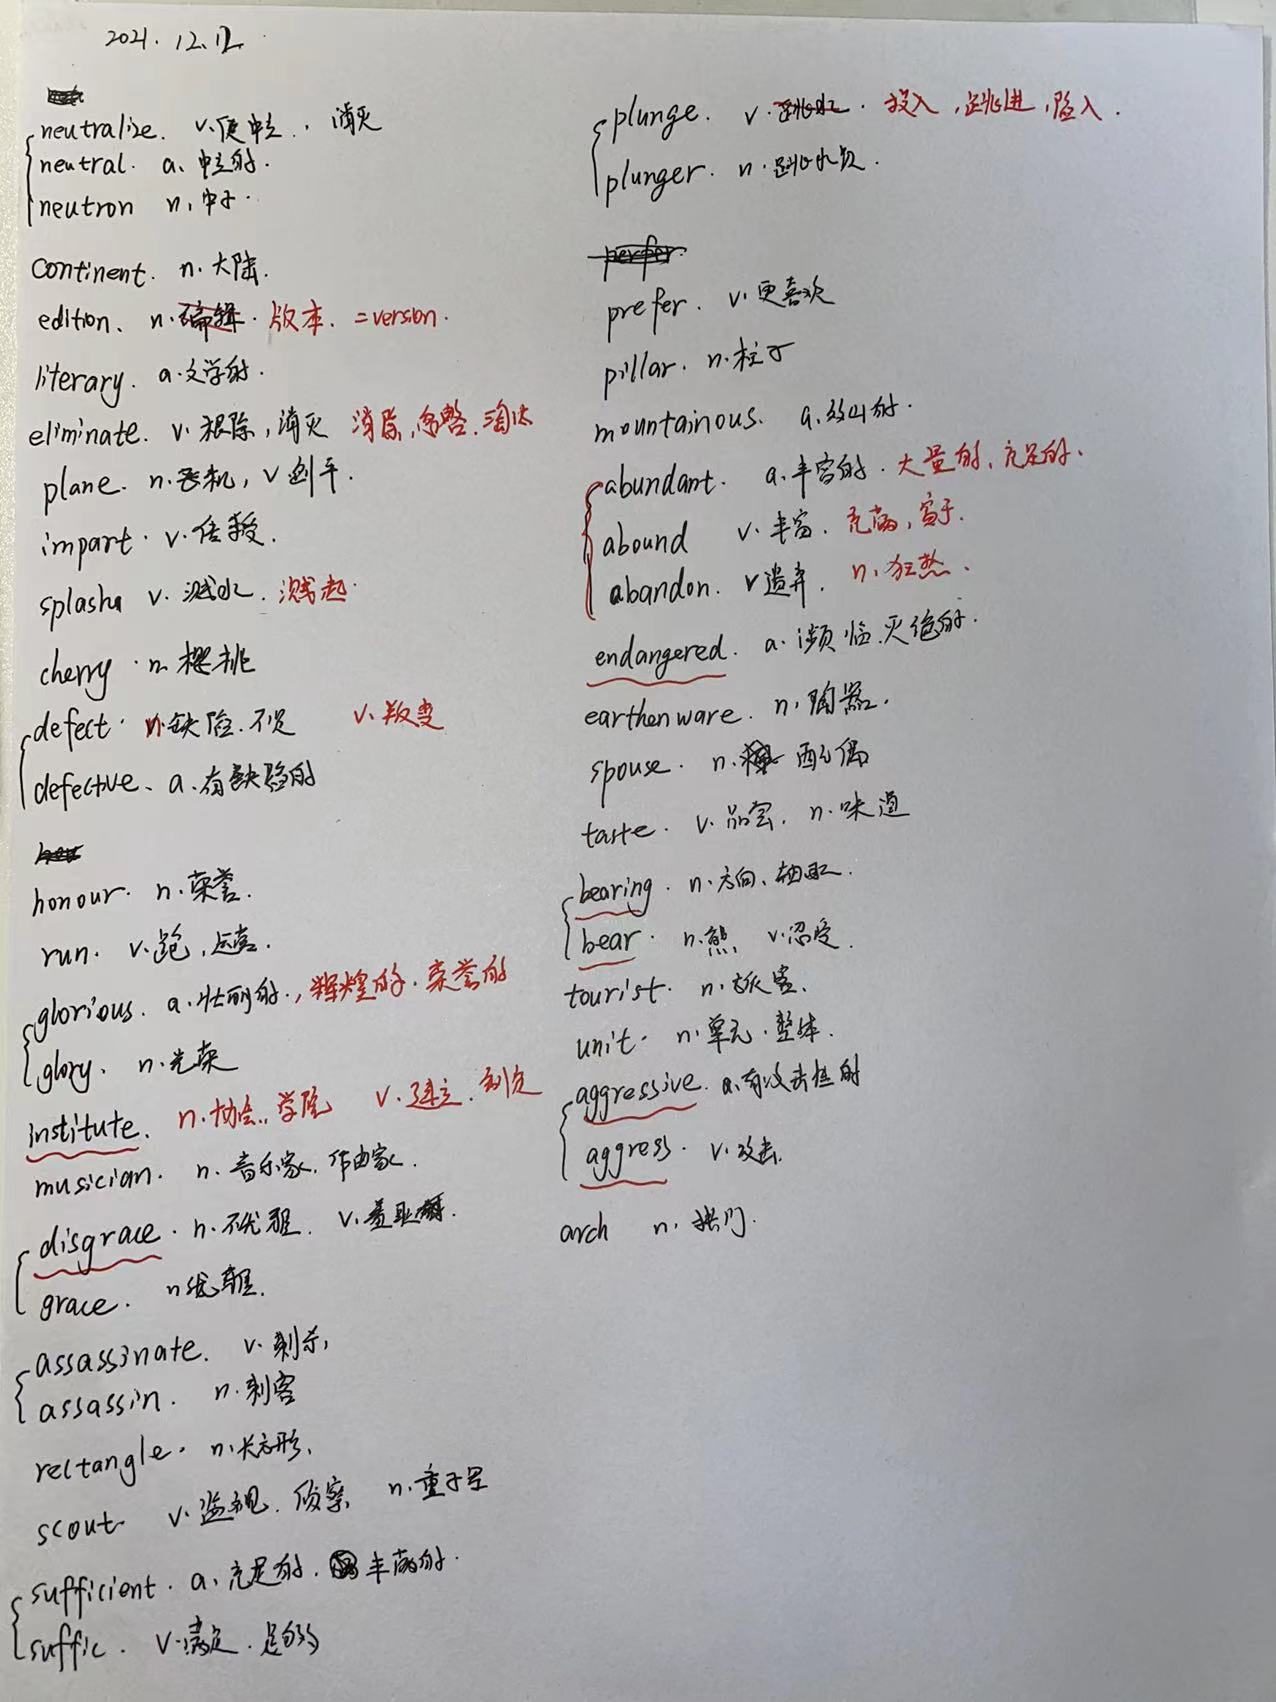 2021.12.12
neutralize. v.使中立, 消灭
neutral. a. 中立的.
neutron n. 中子.
continent. n. 大陆.
edition. n. 编辑. 版本. =version.
literary. a.文学的.
eliminate. v. 根除, 消灭 消除, 忽略. 淘汰
plane. n. 飞机, v 刨平.
impart. v. 传授.
splash v. 溅水. 溅起.
cherry. n. 樱桃
defect. n.缺陷. 不足 v.叛变
defective. a.有缺陷的
honour. n. 荣誉.
run. v.跑, 运营.
glorious. a.壮丽的, 辉煌的. 荣誉的
glory. n.光荣
institute. n.协会, 学院 v.建立. 制定
musician. n. 音乐家. 作曲家.
disgrace. n. 不优雅. v.羞耻
grace. n优雅.
assassinate. v. 刺杀,
assassin. n.刺客
rectangle. n.长方形.
scout. v.监视. 侦察 n.童子军
sufficient. a. 充足的. 丰富的.
suffic. v.满足. 足够
plunge. v.跳水. 投入, 跳进, 陷入.
plunger. n.跳水员.
perfer.
prefer. v.更喜欢
pillar. n.柱子
mountainous. a.多山的.
abundant. a.丰富的. 大量的, 充足的.
abound v. 丰富. 充满, 富于.
abandon. v遗弃. n. 狂热.
endangered. a. 濒临灭绝的.
earthenware. n. 陶器.
spouse. n. 配偶
taste. v. 品尝. n. 味道
bearing. n.方向. 轴承.
bear. n.熊, v.忍受.
tourist. n. 旅客.
unit. n. 单元. 整体.
aggressive. a.有攻击性的
aggress. v.攻击.
arch n. 拱门.